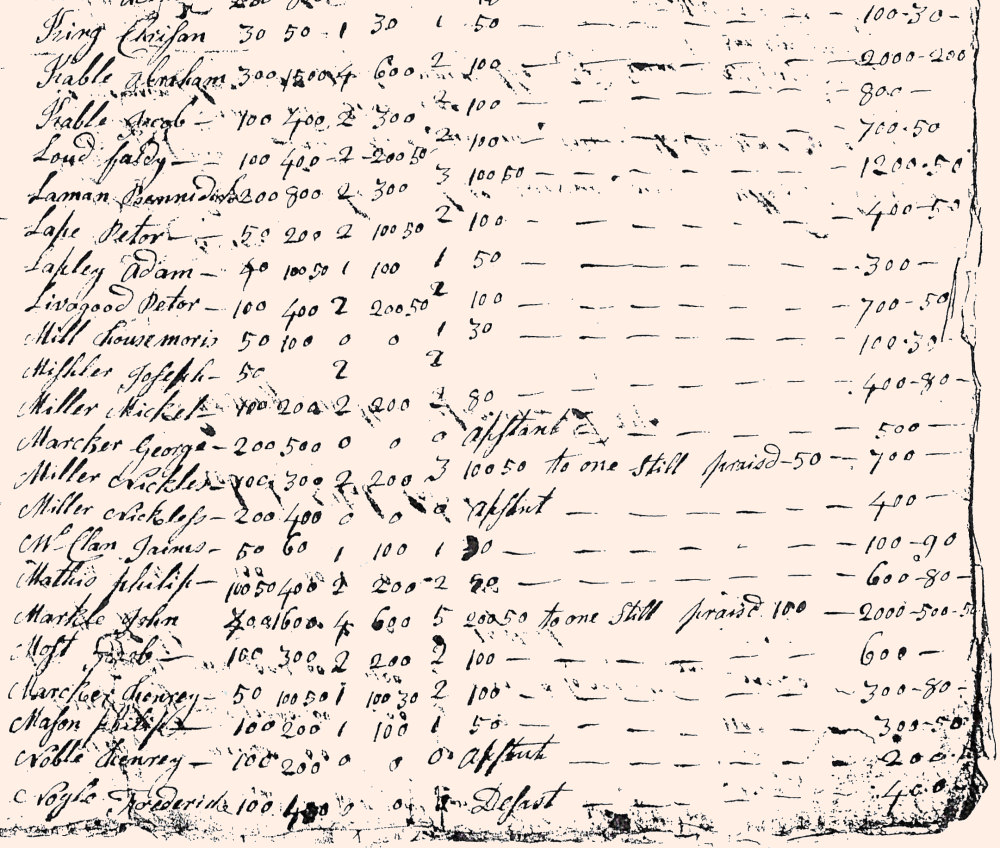 King Chrisan 30 50 1 30 1 50 — 100-30 —
Kable Abraham 300 1500 4 600 2 100 — 2000-200
Kable Jacob — 100 400 2 300 2 100 — 800 —
Loud faldy — 100 400 - 2 - 200 50 2 100 — 700-50
Laman Bennidick 200 800 2 300 3 100 50 — 1200-50
Lape Petor — 50 200 2 100 50 2 100 — 400-50
Lapley Adam — 40 100 50 1 100 1 50 — 300 —
Livogood Petor — 100 400 2 200 50 2 100 — 700-50
Mill house moris 50 100 0 0 1 30 — 100-30 —
Mishler Joseph — 50 2 2
Miller Mickel — 100 200 2 200 2 80 — 400-80 —
Marcker George — 200 500 0 0 0 apstant — 500 —
Miller Nickles — 100 300 2 200 3 100 50 to one still praisd — 50 — 700 —
Miller Nickloss — 200 400 0 0 0 apstnt — 400 —
Mc Clan Jaims — 50 60 1 100 1 30 — 100-90
Mathis philip — 100 50 400 2 200 - 2 80 — 600-80 —
Markle John 1600 4 600 5 200 50 to one still praisd 100 — 2000-500-5
Most Jacob — 100 300 2 200 2 100 — 600 —
Marcker henrey — 50 100 50 1 100 30 2 100 — 300-80 —
Mason philip — 100 200 1 100 1 50 — 300-50
Noble henrey — 100 200 0 0 0 Apstnt — 200
Nogle Frederick 100 400 0 0 Defast — 400